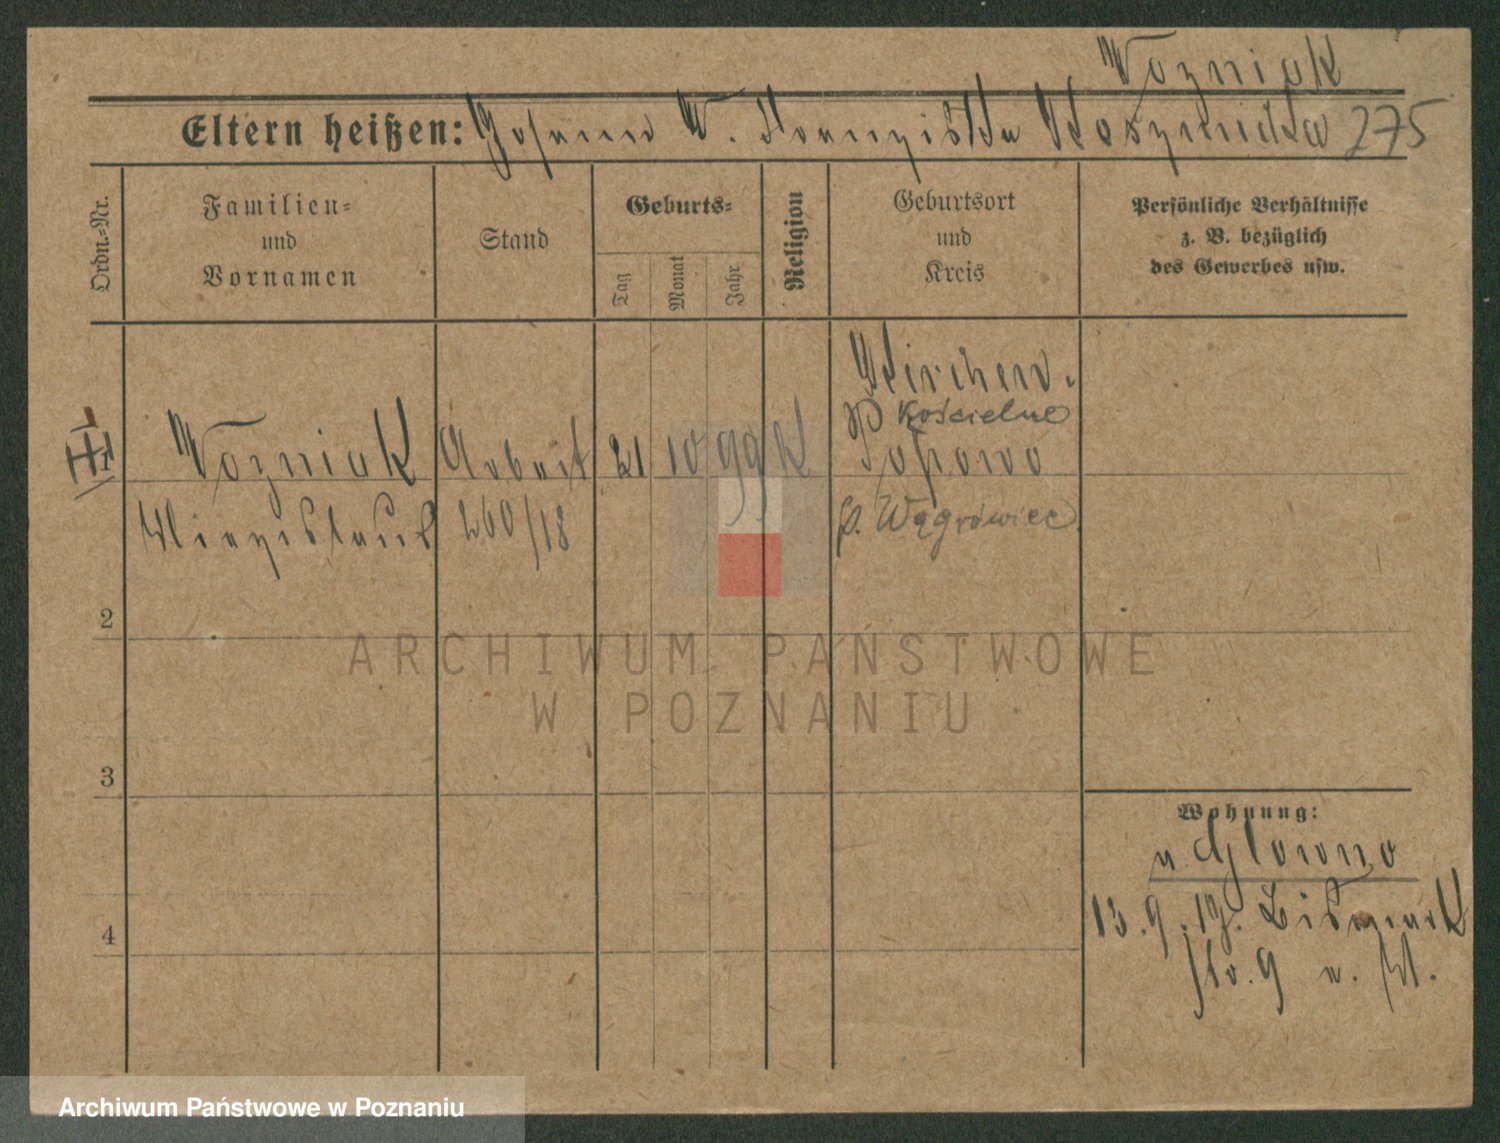 Wozniak
Eltern heißen: Johann W. Franziska Koszincka 275
Ordn.=Nr.
Familien=
und
Vornamen
Stand
Geburts=
Tag
Monat
Jahr
Religion
Geburtsort
und
Kreis
Persönliche Verhältnisse
z. B. bezüglich
des Gewerbes usw.
Kirchen.
P Kościelne
1 Wozniak Arbeit 21 10 99 K Popowo
Miezislaus 260/18 p. Wągrówiec
2
3
4
Wohnung:
n. Glowno
13.9.17. Bismark
str. 9 n. M.
ARCHIWUM PAŃSTWOWE
W POZNANIU
Archiwum Państwowe w Poznaniu